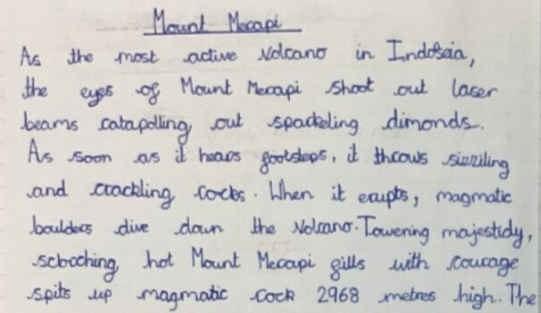 Mount Merapi
As the most active volcano in Indosia,
the eyes of Mount Merapi shoot out laser
beams catapolling out sparkeling dimonds.
As soon as it hears footsteps, it throws sizziling
and crackling rocks. When it erupts, magmatic
boulders dive down the volcano. Towering majestidy,
scbroching hot Mount Merapi gills with courage
spits up magmatic rock 2968 metres high. The